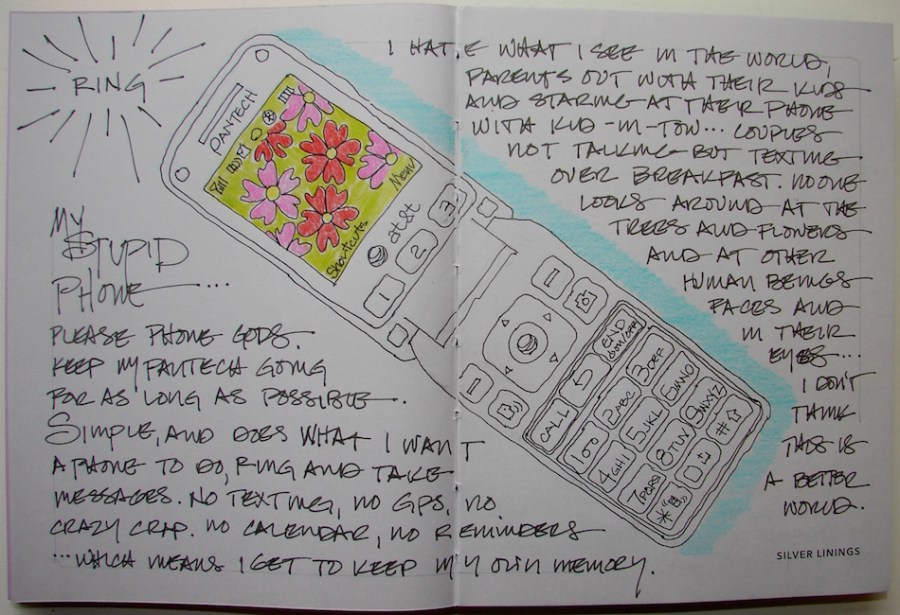 RING
MY
STUPID
PHONE...
PLEASE PHONE GODS.
KEEP MY PANTECH GOING
FOR AS LONG AS POSSIBLE.
SIMPLE, AND DOES WHAT I WANT
A PHONE TO DO, RING AND TAKE
MESSAGES. NO TEXTING, NO GPS, NO
CRAZY CRAP. NO CALENDAR, NO REMINDERS
...WHICH MEANS I GET TO KEEP MY OWN MEMORY.
PANTECH
Menu
Shortcuts
at&t
1 2 3
CALL
END
2ABC 3DEF
4GHI 5JKL 6MNO
7PQRS 8TUV 9WXYZ
*
#
I HATE WHAT I SEE IN THE WORLD,
PARENTS OUT WITH THEIR KIDS
AND STARING AT THEIR PHONE
WITH KID-IN-TOW... COUPLES
NOT TALKING BUT TEXTING
OVER BREAKFAST. NO ONE
LOOKS AROUND AT THE
TREES AND FLOWERS
AND AT OTHER
HUMAN BEINGS
FACES AND
IN THEIR
EYES...
I DON'T
THINK
THIS IS
A BETTER
WORLD.
SILVER LININGS